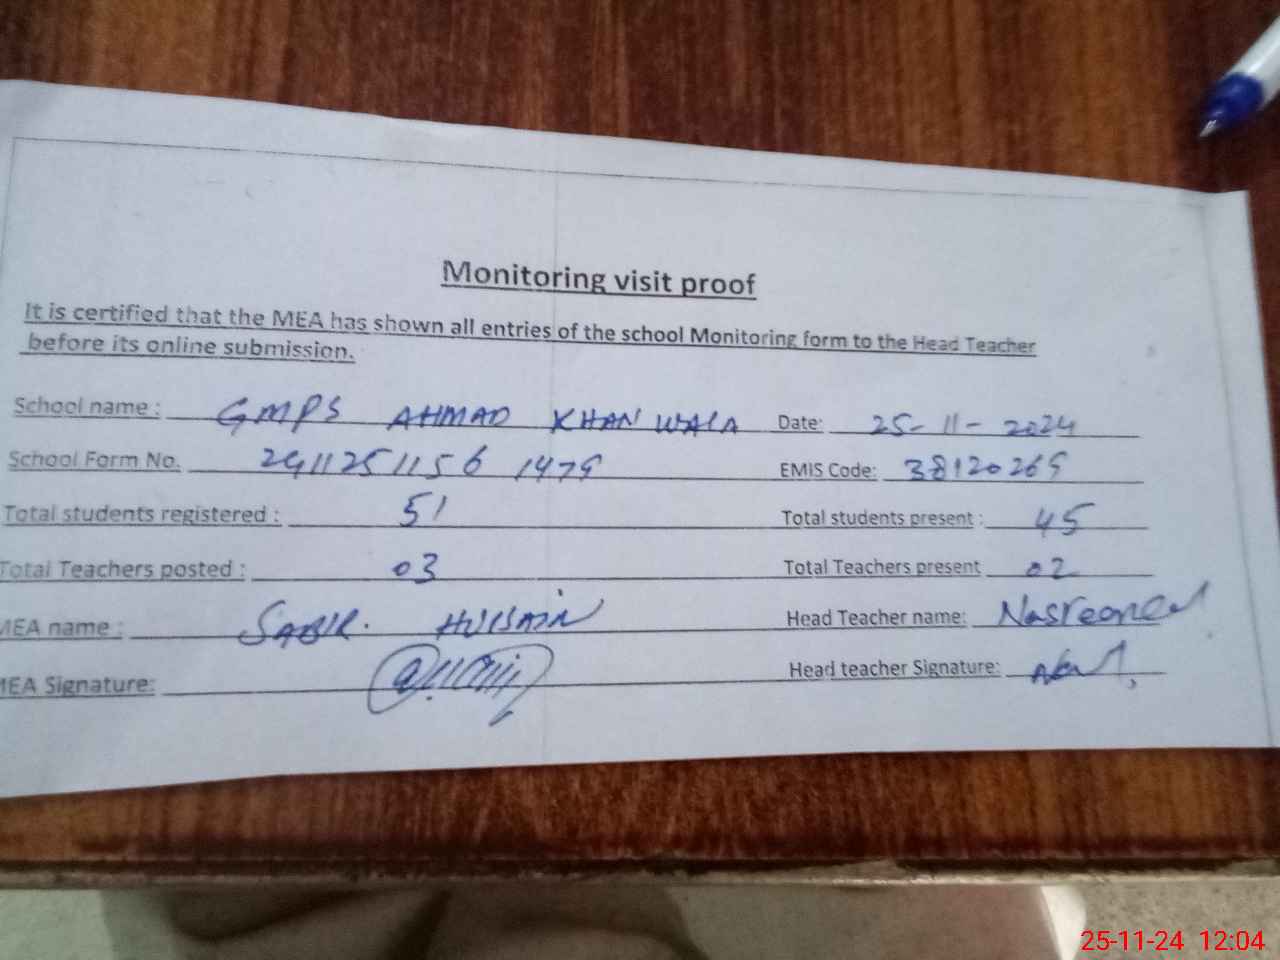 Monitoring visit proof
It is certified that the MEA has shown all entries of the school Monitoring form to the Head Teacher
before its online submission.
School name : GMPS AHMAD KHAN WALA Date: 25-11-2024
School Form No. 2411251156 1479 EMIS Code: 38120269
Total students registered : 51 Total students present : 45
Total Teachers posted : 03 Total Teachers present 02
MEA name : SABIR. HUSSAIN Head Teacher name:
MEA Signature: Head teacher Signature:
25-11-24 12:04